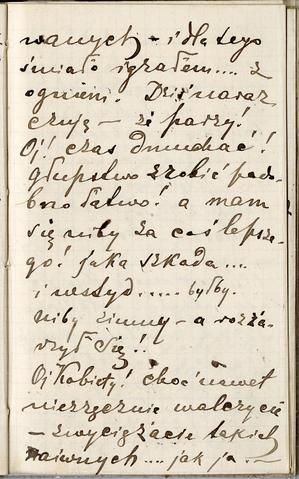 wanych – i dla tego
śmiało igrałem.... z
ogniem. Dziś naraz
czuję – że parzy!
Oj! czas dmuchać!
głupstwo zrobić podo-
bno łatwo! a mam
się niby za coś lepsze-
go! jaka szkoda...
i wstyd..... byłby.
niby zimny – a rozża-
rzył się!!
Oj Kobiety! choć nawet
niezręcznie walczycie
– zwyciężacie takich
naiwnych.... jak ja.